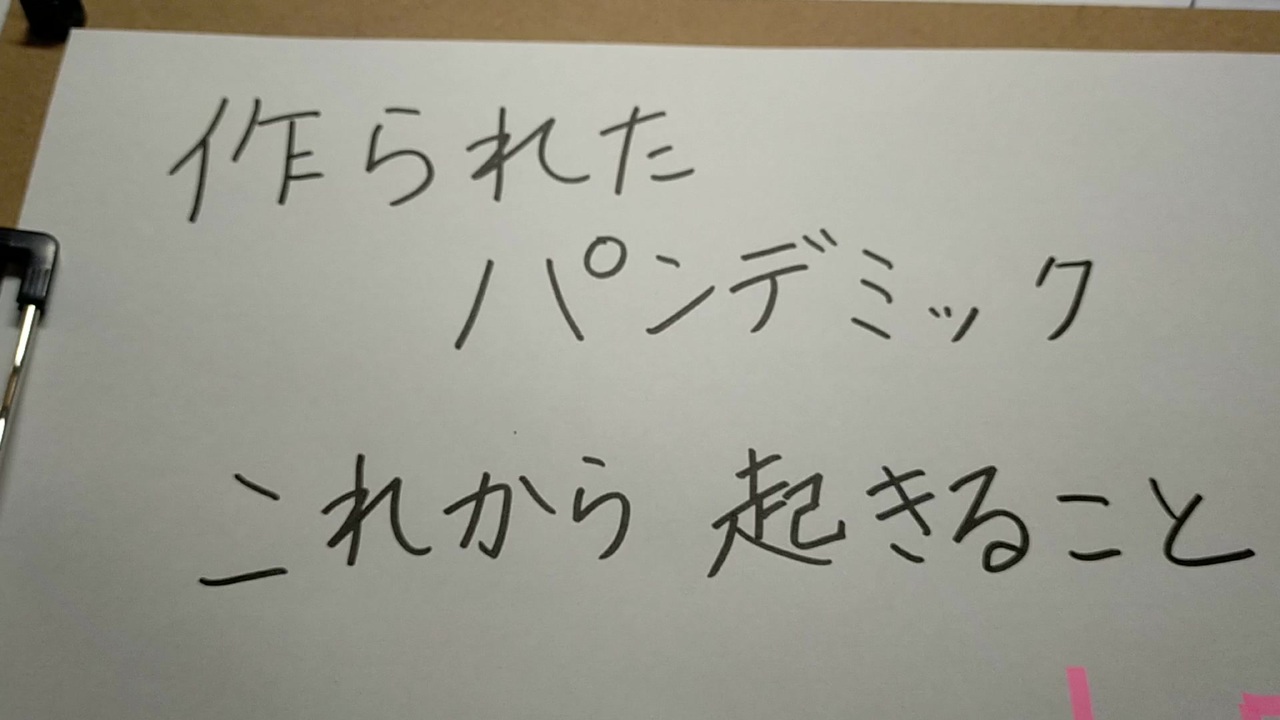 作られた
パンデミック
これから起きること